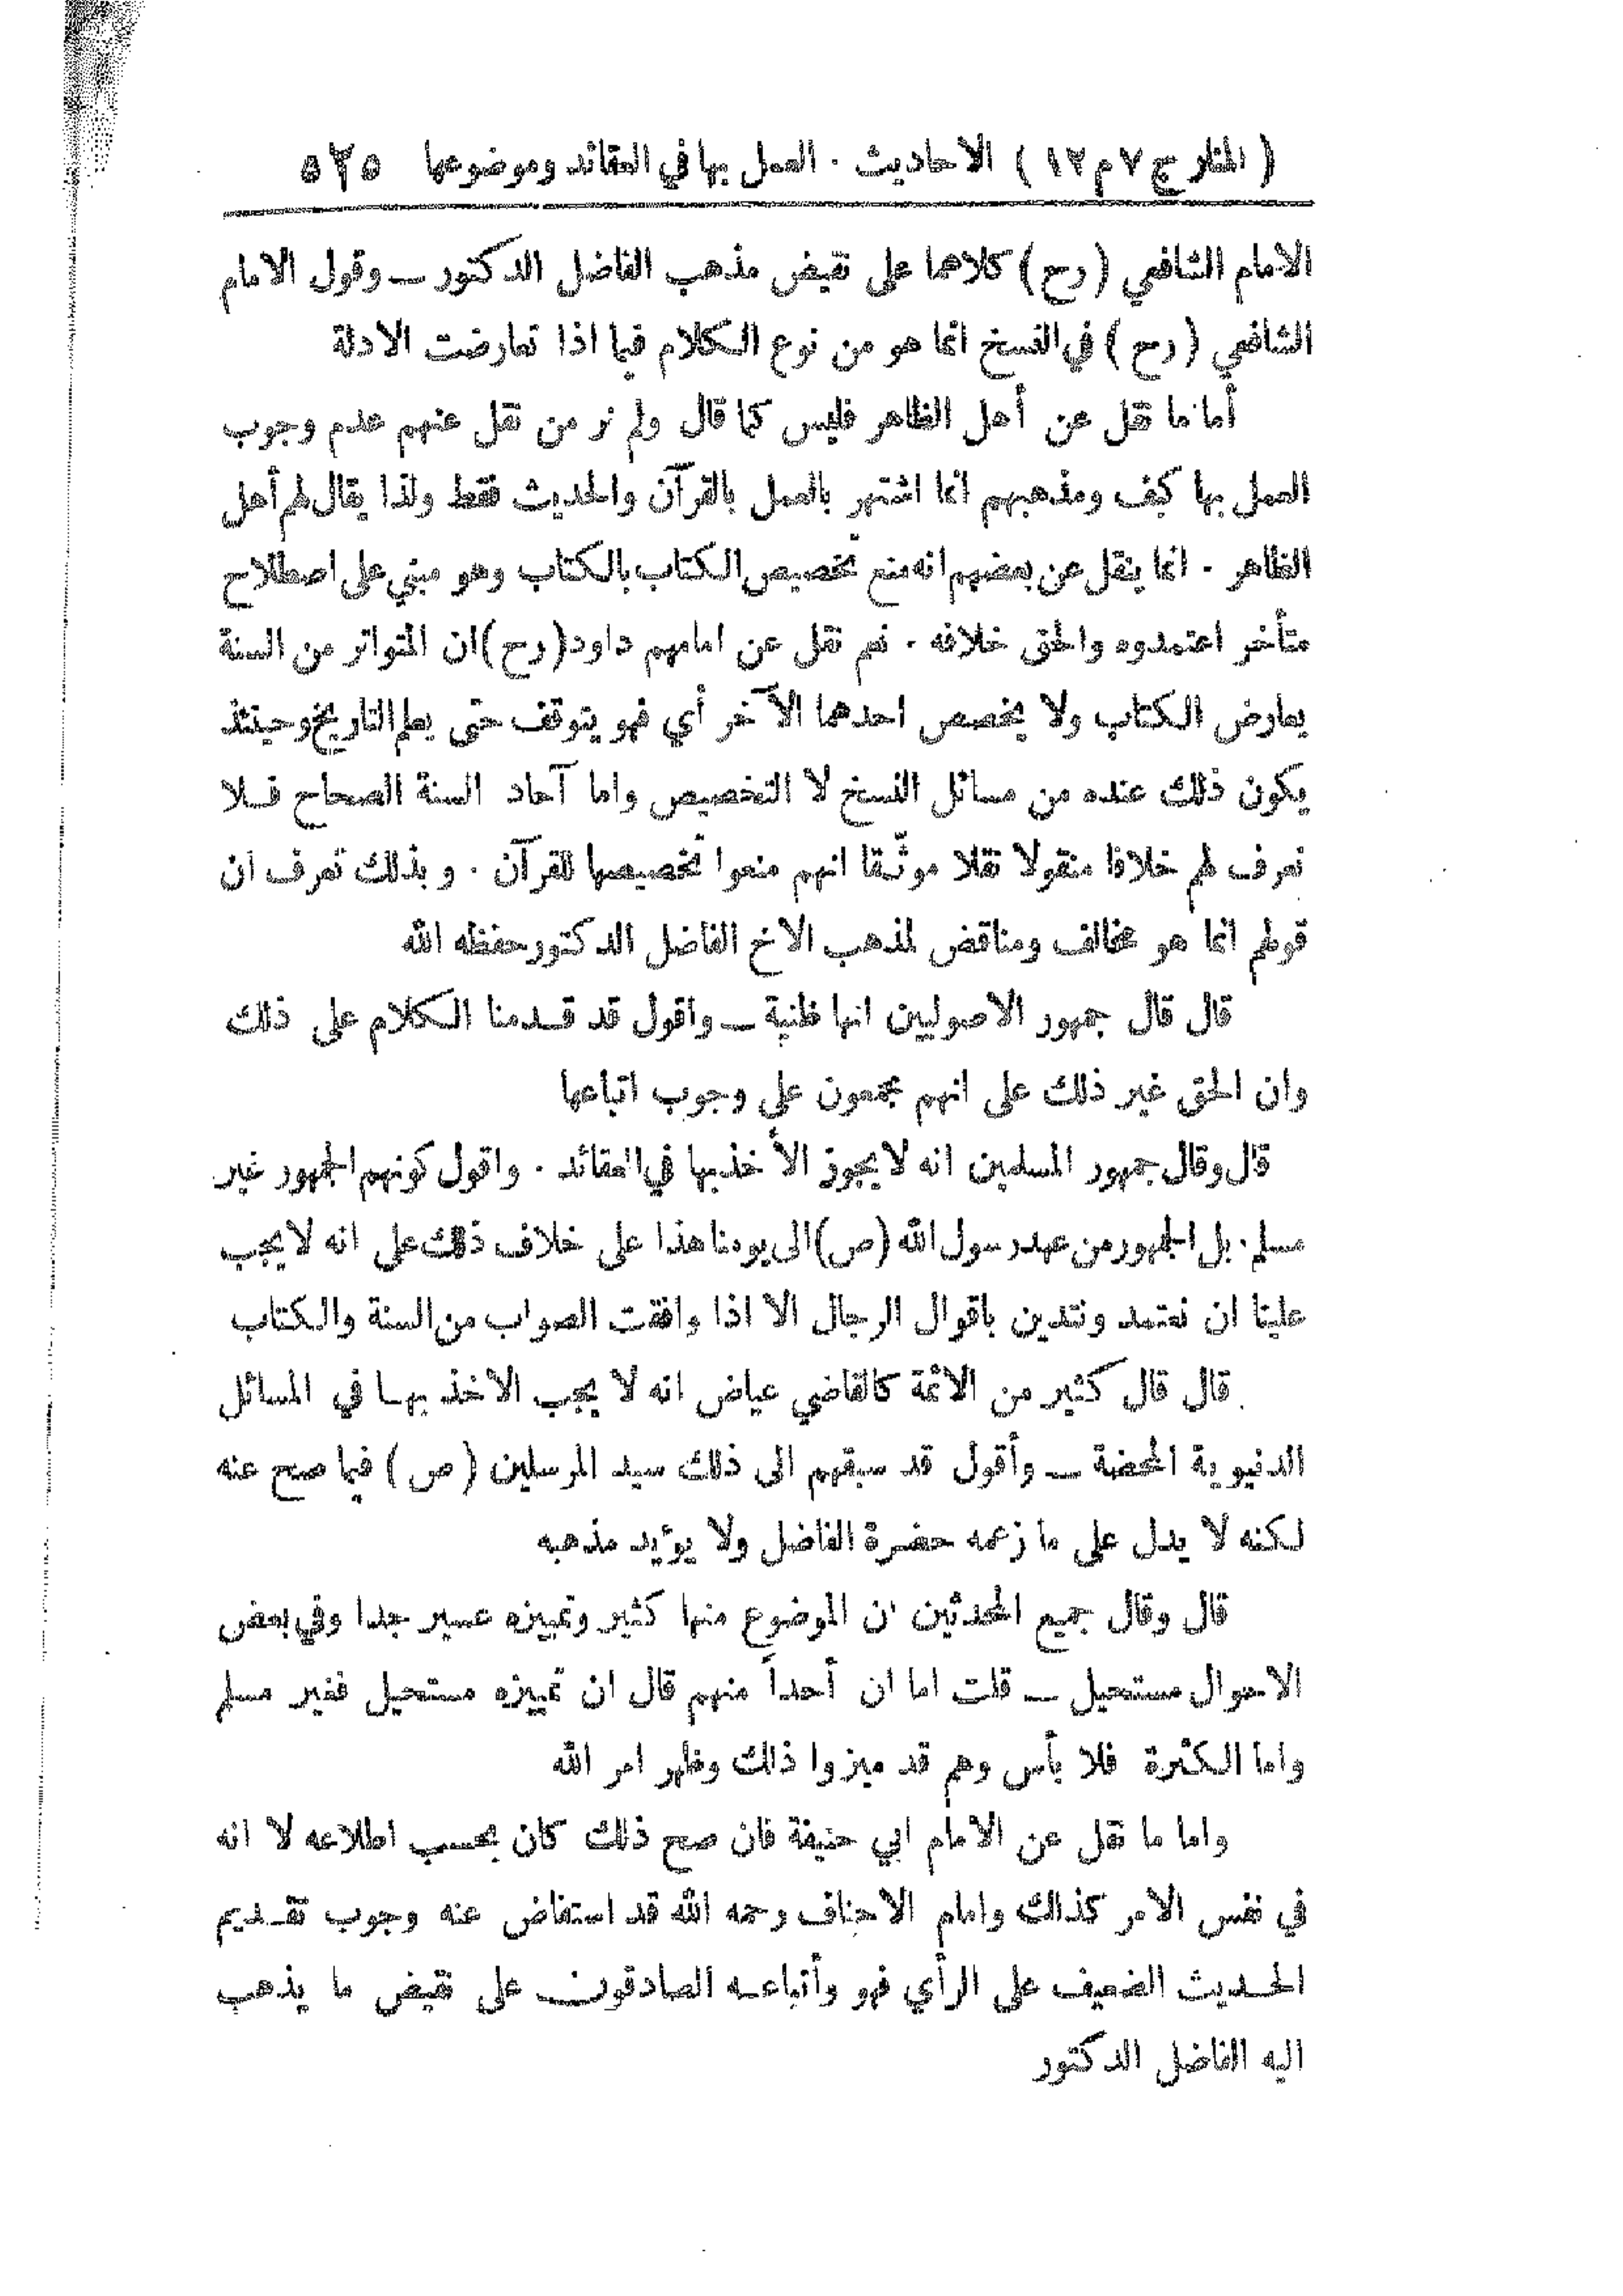 ( المنار ج ٧ م ١٢ ) الاحاديث . العمل بها في العقائد وموضوعها ٥٢٥
الامام الشافعي ( رح ) كلاهما على نقيض مذهب الفاضل الدكتور ــ وقول الامام
الشافعي ( رح ) في النسخ انما هو من نوع الكلام فيما اذا تعارضت الادلة
أما ما نقل عن أهل الظاهر فليس كما قال ولم نر من نقل عنهم عدم وجوب
العمل بها كيف ومذهبهم انما اشتهر بالعمل بالقرآن والحديث فقط ولذا يقال لهم أهل
الظاهر . انما ينقل عن بعضهم انه منع تخصيص الكتاب بالكتاب وهو مبني على اصطلاح
متأخر اعتمدوه والحق خلافه . نعم نقل عن امامهم داود ( رح ) ان المتواتر من السنة
يعارض الكتاب ولا يخصص احدهما الآخر أي فهو يتوقف حتى يعلم التاريخ وحينئذ
يكون ذلك عنده من مسائل النسخ لا التخصيص واما آحاد السنة الصحاح فلا
نعرف لهم خلافا منقولا نقلا موثّقا انهم منعوا تخصيصها للقرآن . وبذلك تعرف ان
قولهم انما هو مخالف ومناقض لمذهب الاخ الفاضل الدكتور حفظه الله
قال قال جمهور الاصوليين انها ظنية ــ واقول قد قدمنا الكلام على ذلك
وان الحق غير ذلك على انهم مجمعون على وجوب اتباعها
قال وقال جمهور المسلمين انه لا يجوز الأخذ بها في العقائد . واقول كونهم الجمهور غير
مسلم . بل الجمهور من عهد رسول الله ( ص ) الى يومنا هذا على خلاف ذلك على انه لا يجب
علينا ان نعتمد ونتدين باقوال الرجال الا اذا وافقت الصواب من السنة والكتاب
قال قال كثير من الائمة كالقاضي عياض انه لا يجب الاخذ بها في المسائل
الدنيوية المحضة ــ وأقول قد سبقهم الى ذلك سيد المرسلين ( ص ) فيما صح عنه
لكنه لا يدل على ما زعمه حضرة الفاضل ولا يؤيد مذهبه
قال وقال جميع المحدثين ان الموضوع منها كثير وتمييزه عسير جدا وفي بعض
الاحوال مستحيل ــ قلت اما ان أحداً منهم قال ان تمييزه مستحيل فغير مسلم
واما الكثرة فلا بأس وهم قد ميزوا ذلك وظهر امر الله
واما ما نقل عن الامام ابي حنيفة فان صح ذلك كان بحسب اطلاعه لا انه
في نفس الامر كذلك وامام الاحناف رحمه الله قد استفاض عنه وجوب تقديم
الحديث الضعيف على الرأي فهو وأتباعه الصادقون على نقيض ما يذهب
اليه الفاضل الدكتور